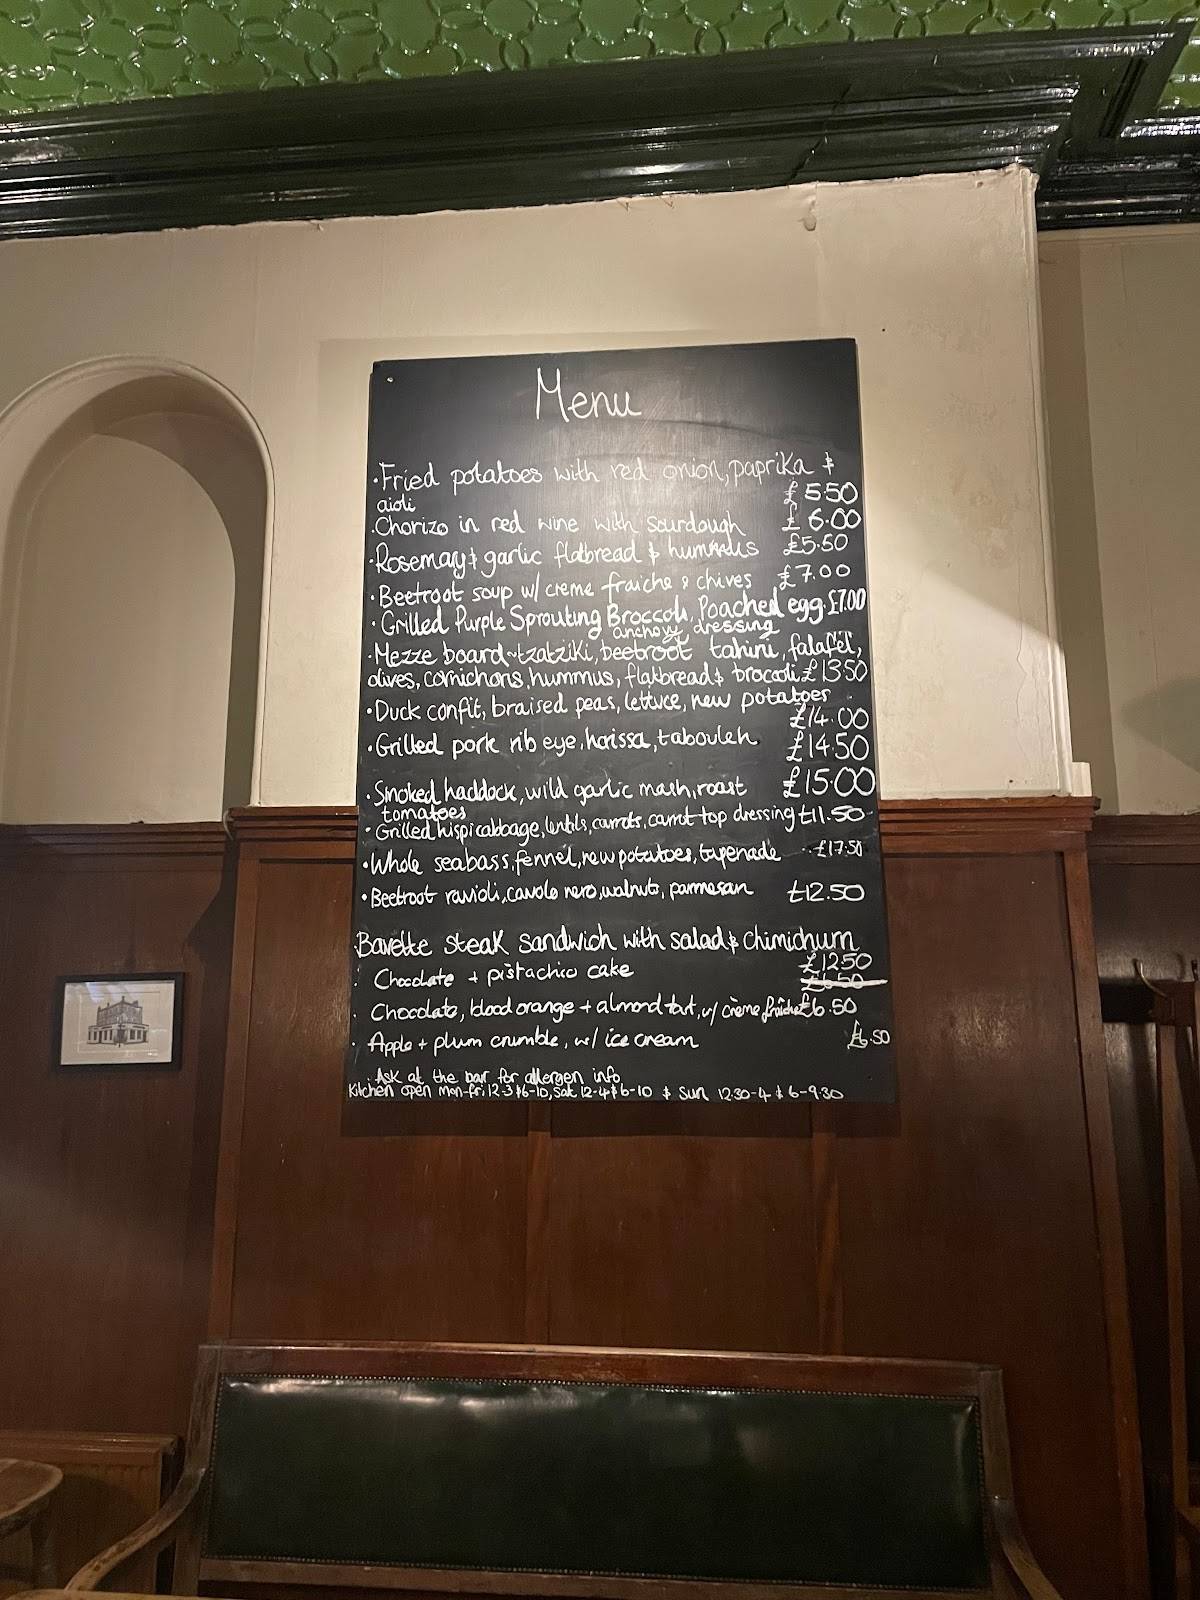 Menu
· Fried potatoes with red onion, paprika &
aioli £5.50
· Chorizo in red wine with sourdough £6.00
· Rosemary & garlic flatbread & hummus £5.50
· Beetroot soup w/ creme fraiche & chives £7.00
· Grilled Purple Sprouting Broccoli, Poached egg. £7.00
anchovy dressing
· Mezze board ~ tzatziki, beetroot tahini, falafel,
olives, cornichons, hummus, flatbread & brocoli £13.50
· Duck confit, braised peas, lettuce, new potatoes
£14.00
· Grilled pork rib eye, harissa, tabouleh £14.50
· Smoked haddock, wild garlic mash, roast £15.00
tomatoes
· Grilled hispi cabbage, lentils, carrots, carrot top dressing £11.50
· Whole seabass, fennel, new potatoes, tapenade £17.50
· Beetroot ravioli, cavolo nero, walnuts, parmesan £12.50
Bavette steak sandwich with salad & chimichurri
£12.50
· Chocolate + pistachio cake £6.50
· Chocolate, blood orange + almond tart, w/ crème fraîche £6.50
· Apple + plum crumble, w/ ice cream £6.50
· Ask at the bar for allergen info
Kitchen open mon-fri 12-3 & 6-10, Sat 12-4 & 6-10 & Sun 12.30-4 & 6-9.30